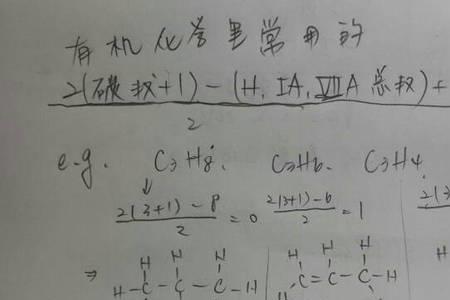 有机化学里常用的
2(碳数+1)-(H, IA, ⅦA总数)+
2
e.g. C3H8, C3H6, C3H4
2(3+1)-8 / 2 = 0 2(3+1)-6 / 2 = 1 2(3
⇒ H H H H H H H
H-C-C-C-H C=C-C-